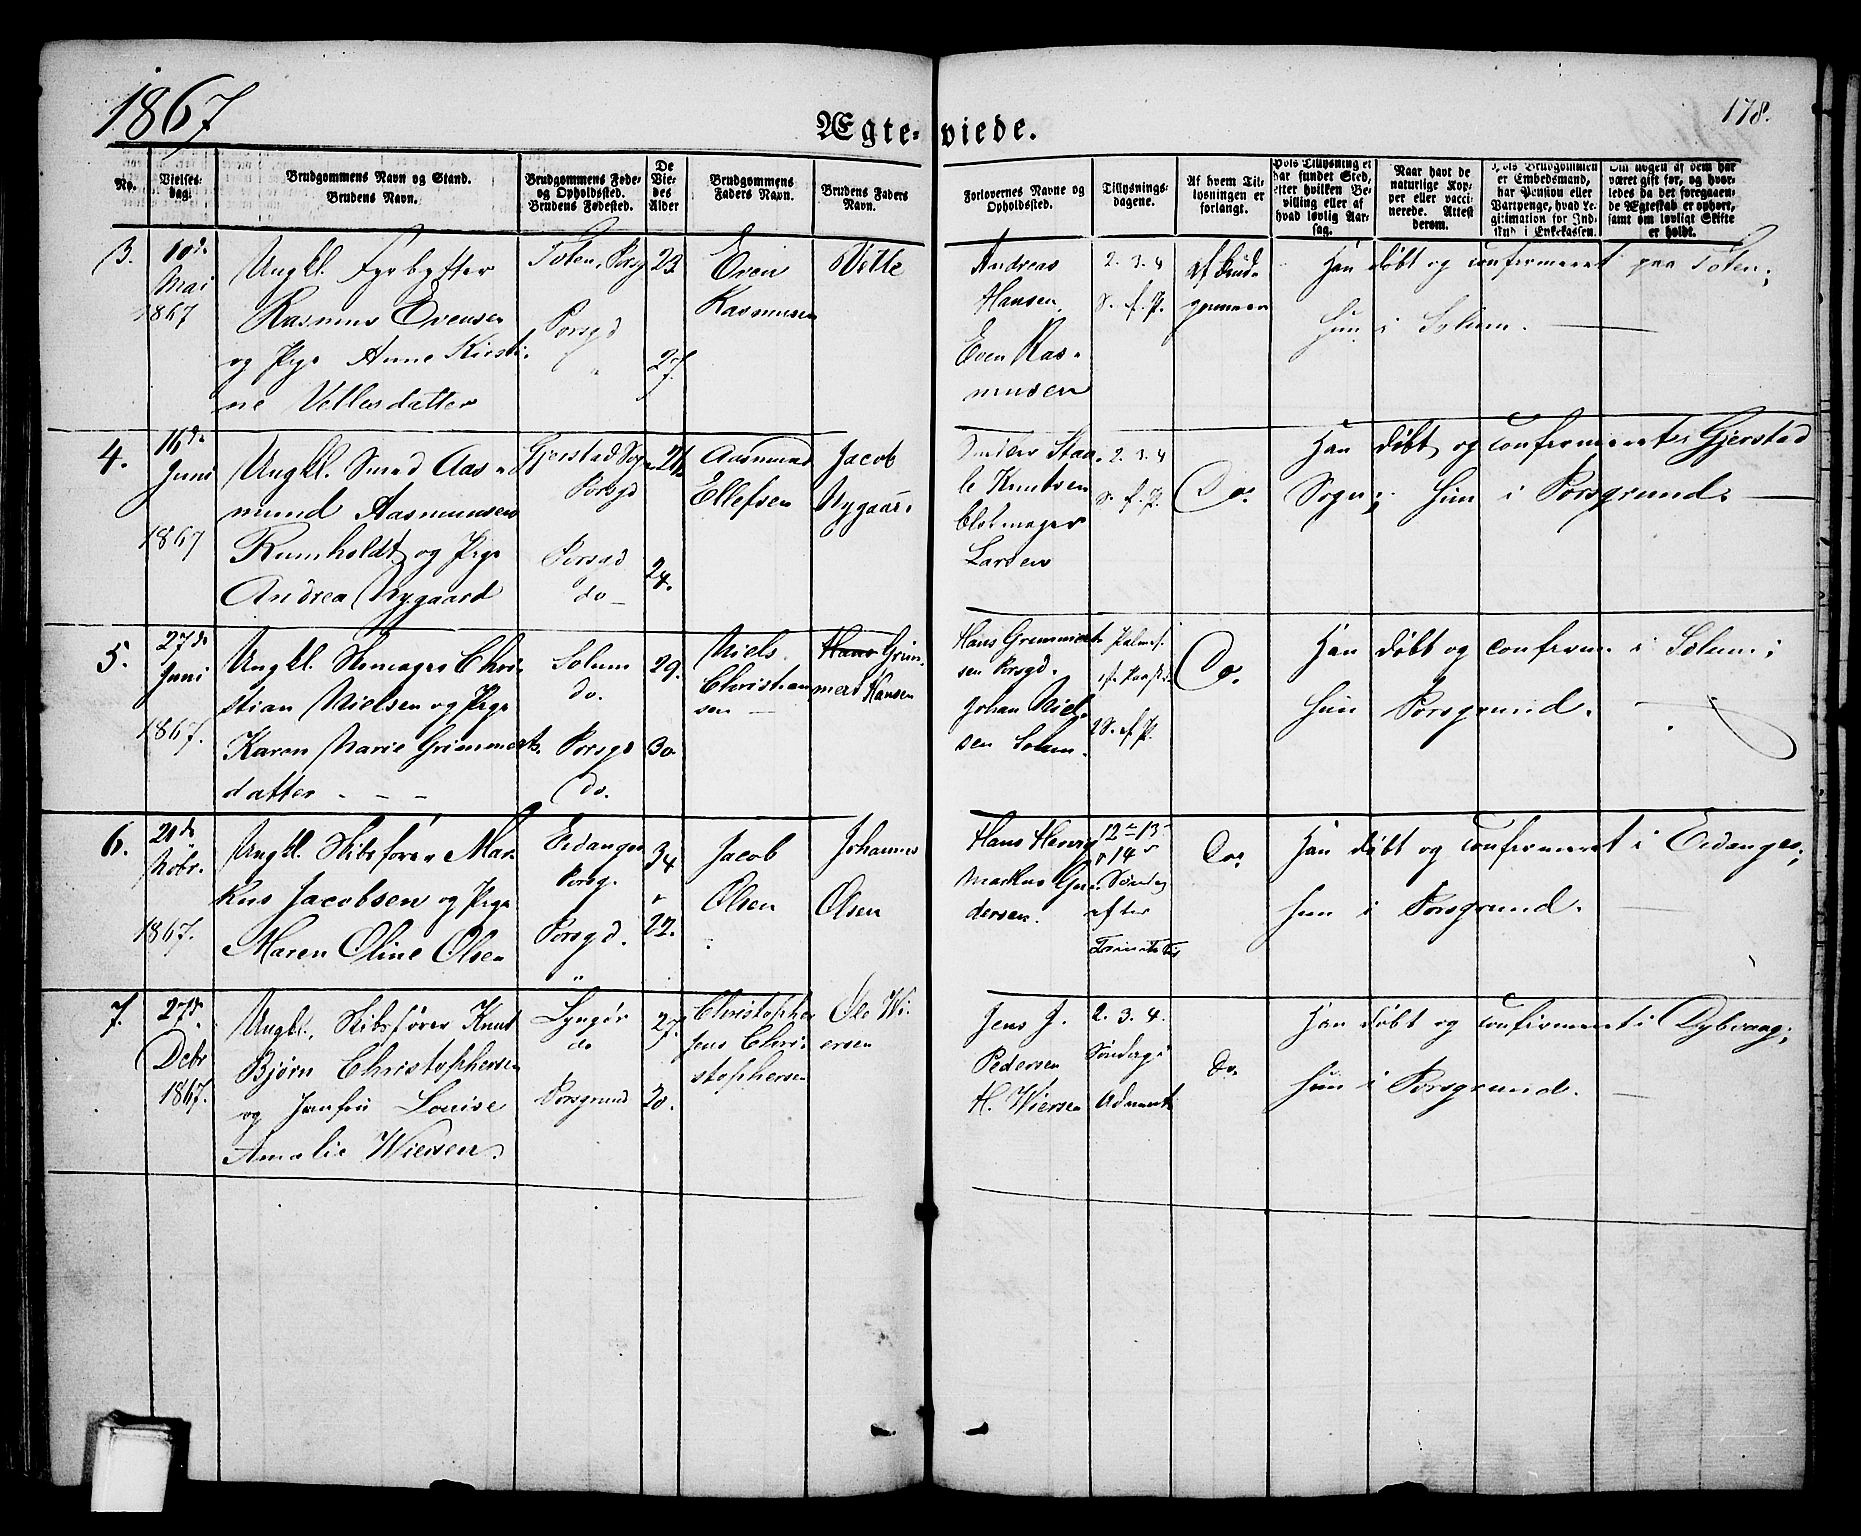 1867
178.
Ægte-viede.
No.
Vielses-
dag.
Brudgommens Navn og Stand.
Brudens Navn.
Brudgommens Føde-
og Opholdssted.
Brudens Fødested.
De
Vie-
des
Alder
Brudgommens
Faders Navn.
Brudens Faders
Navn.
Forlovernes Navne og
Opholdssted.
Tillysnings-
dagene.
Af hvem Til-
lysningen er
forlangt.
Hvis Tillysning ei
har fundet Sted,
efter hvilken Be-
villing eller af
hvad lovlig Aar-
sag.
Naar havt de
naturlige Kop-
per eller vacci-
nerede. Attest
derom.
Hvis Brudgommen
er Embedsmand,
har Pension eller
Vartpenge, hvad Le-
gitimation for Ind-
skud i Enkekassen.
Om nogen af dem har
været gift før, og hvor-
ledes da det foregaaen-
de Ægteskab er ophørt,
samt om lovligt Skifte
er holdt.
3.
10de
Mai
1867
Ungkl. Fyrbøtter
Rasmus Evensen
og Pige Anne Kirsti-
ne Vetlesdatter
Toten, Porsg
Porsgd
23.
27.
Even
Rasmusen
Vetle
Andreas
Hansen.
Even Ras-
musen
2. 3. 4
S. e. P.
af Brud-
gommen
Han døbt og confirmeret paa Toten;
hun i Solum.
4.
16de
Juni
1867
Ungkl. Smed Aas-
mund Aasmundsen
Rumholdt og Pige
Andrea Nygaard
Gjerstad Sogn
Porsgd
Porsgd
do
24.
Aasmund
Ellefsen
Jacob
Nygaard
Knutsen
Larsen
2. 3. 4
S. e. P.
Do.
Han døbt og confirmeret i Gjerstad
Sogn; hun i Porsgrund.
5.
27de
Juni
1867.
Ungkl. Chri-
stian Nielsen og Pige
Karen Marie Grimmerts
datter
Solum
do.
Porsgd
do.
29.
30.
Niels
Christian
sen
Hans Grim-
mert Hansen
Hans Grimmert
sen Porsgd.
Johan Niel-
sen Solum.
2 S. e. P.
Do.
Han døbt og confirm. i Solum;
hun Porsgrund.
6.
21de
Nobr.
1867.
Ungkl. Skibsfører Mar-
kus Jacobsen og Pige
Maren Oline Olsen
Eidanger
Porsg.
Porsgd.
34
22.
Jacob
Olsen
Johannes
Olsen
Hans Herwig
Markus Gun-
dersen.
12te 13
14
Søndag
efter
Trinitatis
Do.
Han døbt og confirmeret i Eidanger;
hun i Porsgrund.
7.
27de
Debr
1867.
Ungkl. Skibsfører Knut
Bjørn Christophersen
og Jomfru Louise
Amalie Wiersen.
Lyngør
do
Porsgrund
27.
20.
Christopher
Jens Chri-
stophersen
Ole Wi-
ersen
Jens J.
Pedersen
H. Wiersen
2. 3. 4.
Søndag i
Advent
Do.
Han døbt og confirmeret i Dybvaag;
hun i Porsgrund.